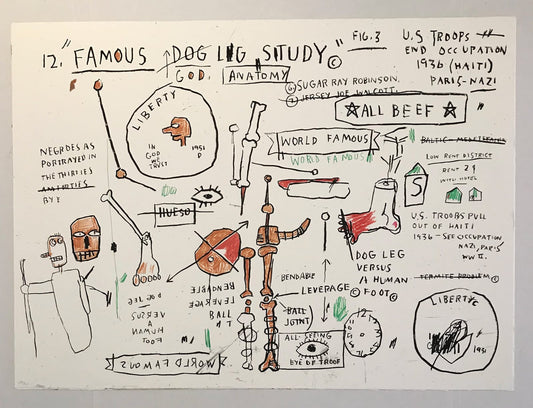 12. "FAMOUS DOG LEG STUDY"©
FIG.3
U.S TROOPS
END OCCUPATION
1936 (HAITI)
PARIS-NAZI
GOD.
ANATOMY
⑥ SUGAR RAY ROBINSON.
⑦ JERSEY JOE WALCOTT.
ALL BEEF
LIBERTY
IN
GOD
WE
TRUST
1951
D
WORLD FAMOUS
WORLD FAMOUS
LOW RENT DISTRICT
RENT 2$
WITH HOTEL
S
NEGROES AS
PORTRAYED IN
THE THIRTIES
HUESO
U.S. TROOPS PULL
OUT OF HAITI
1936-SEE OCCUPATION
NAZI, PARIS
WW II.
TERMITE PROBLEM ©
DOG LEG
VERSUS
A HUMAN
FOOT
BENDABLE
LEVERAGE
BALL
BENDABLE
LEVERAGE
BALL
JOINT
DOG LEG
VERSUS
A HUMAN
© FOOT ©
ALL SEEING
EYE OF TROOF
12
LIBERTY
1951
WORLD FAMOUS